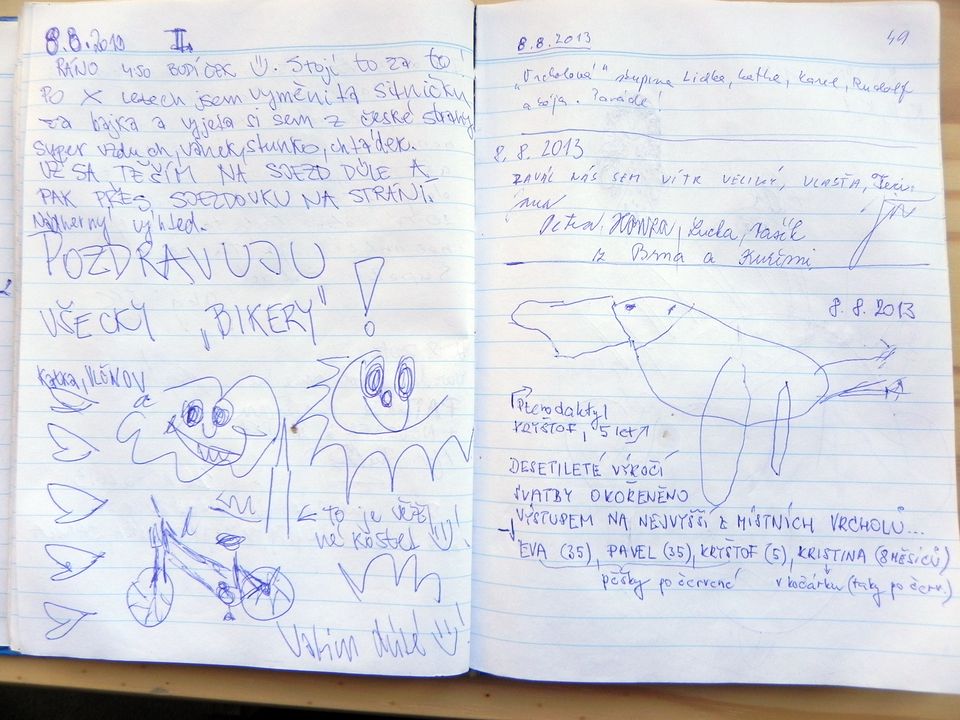 8.8.2013 II.
RÁNO 4:50 BUDÍČEK Stojí to za to
Po X letech jsem vyměnila silničku
za bajka a vyjela si sem z české strany
super vzduch, vánek, slunko, chládek.
UŽ SA TĚŠÍM NA SJEZD DÚLE A
PAK PŘES SJEZDOVKU NA STRÁNÍ.
Nádherný výhled.
POZDRAVUJU
VŠECKY „BIKERY" !
Katka, VLČNOV
a
← to je věž
ne kostel !
Valím dúle !
8.8.2013 49
„Vrcholová" skupina Lidka, Katka, Karel, Rudolf
a Bója. Paráda!
8. 8. 2013
NÁS SEM VÍTR VELIKÝ, VLASŤA,
Petra, HONZA, Lucka, Vašík
z Brna a Kuřimi
8. 8. 2013
Pterodaktyl
KRYŠTOF, 5 let
DESETILETÉ VÝROČÍ
SVATBY OKOŘENĚNO
VÝSTUPEM NA NEJVYŠŠÍ Z MÍSTNÍCH VRCHOLŮ...
EVA (35), PAVEL (35), KRYŠTOF (5), KRISTINA (8 MĚSÍCŮ)
pěšky po červené v kočárku (taky po červ.)